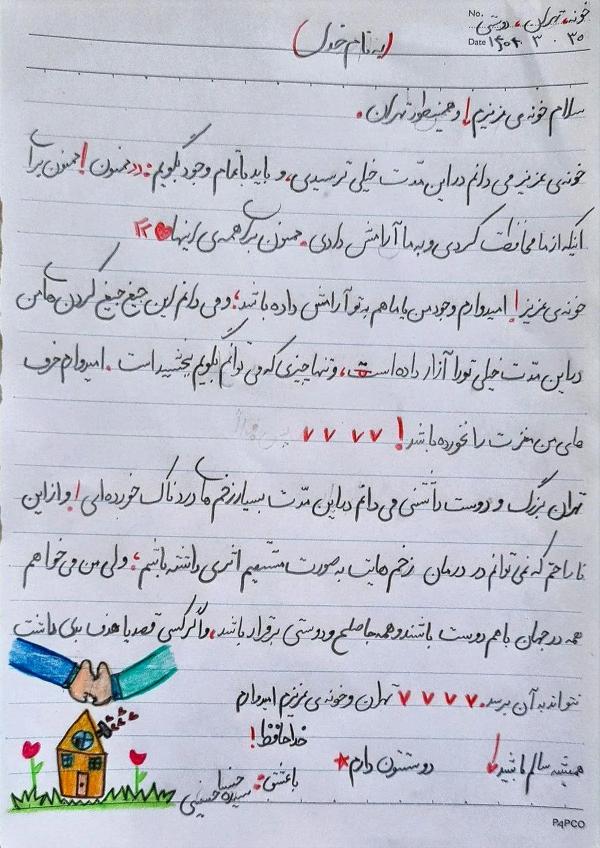 No. خونه، تهران، دوستی
Date ۱۴۰۴ ۳ ۳۰
(به نام خدا)
سلام خونه‌ی عزیزم! و همینطور تهران.
خونه‌ی عزیز می دانم در این مدت خیلی ترسیدی، و باید با تمام وجود بگویم: ممنون! ممنون برای
اینکه از ما محافظت کردی و به ما آرامش دادی. ممنون برای همه‌ی اینها
خونه‌ی عزیز! امیدوارم وجود من یا ما هم به تو آرامش داده باشد؛ و می دانم این جیغ جیغ کردن های من
در این مدت خیلی تو را آزار داده است، و تنها چیزی که می توانم بگویم ببخشید است. امیدوارم حرف
های من مغزت را نخورده باشد!
تهران بزرگ و دوست داشتنی می دانم در این مدت بسیار زخم های دردناک خورده ای! و از این
ناراحتم که نمی توانم در درمان زخم هایت به صورت مستقیم اثری داشته باشم؛ ولی من می خواهم
همه در جهان با هم دوست باشند و همه جا صلح و دوستی برقرار باشد، و اگر کسی قصد یا هدف بدی داشت
نتواند به آن برسد. تهران و خونه‌ی عزیزم امیدوارم
همیشه سالم باشید! دوستتون دارم* خداحافظ!
با عشق: سیده حسنا حسینی
PAPCO